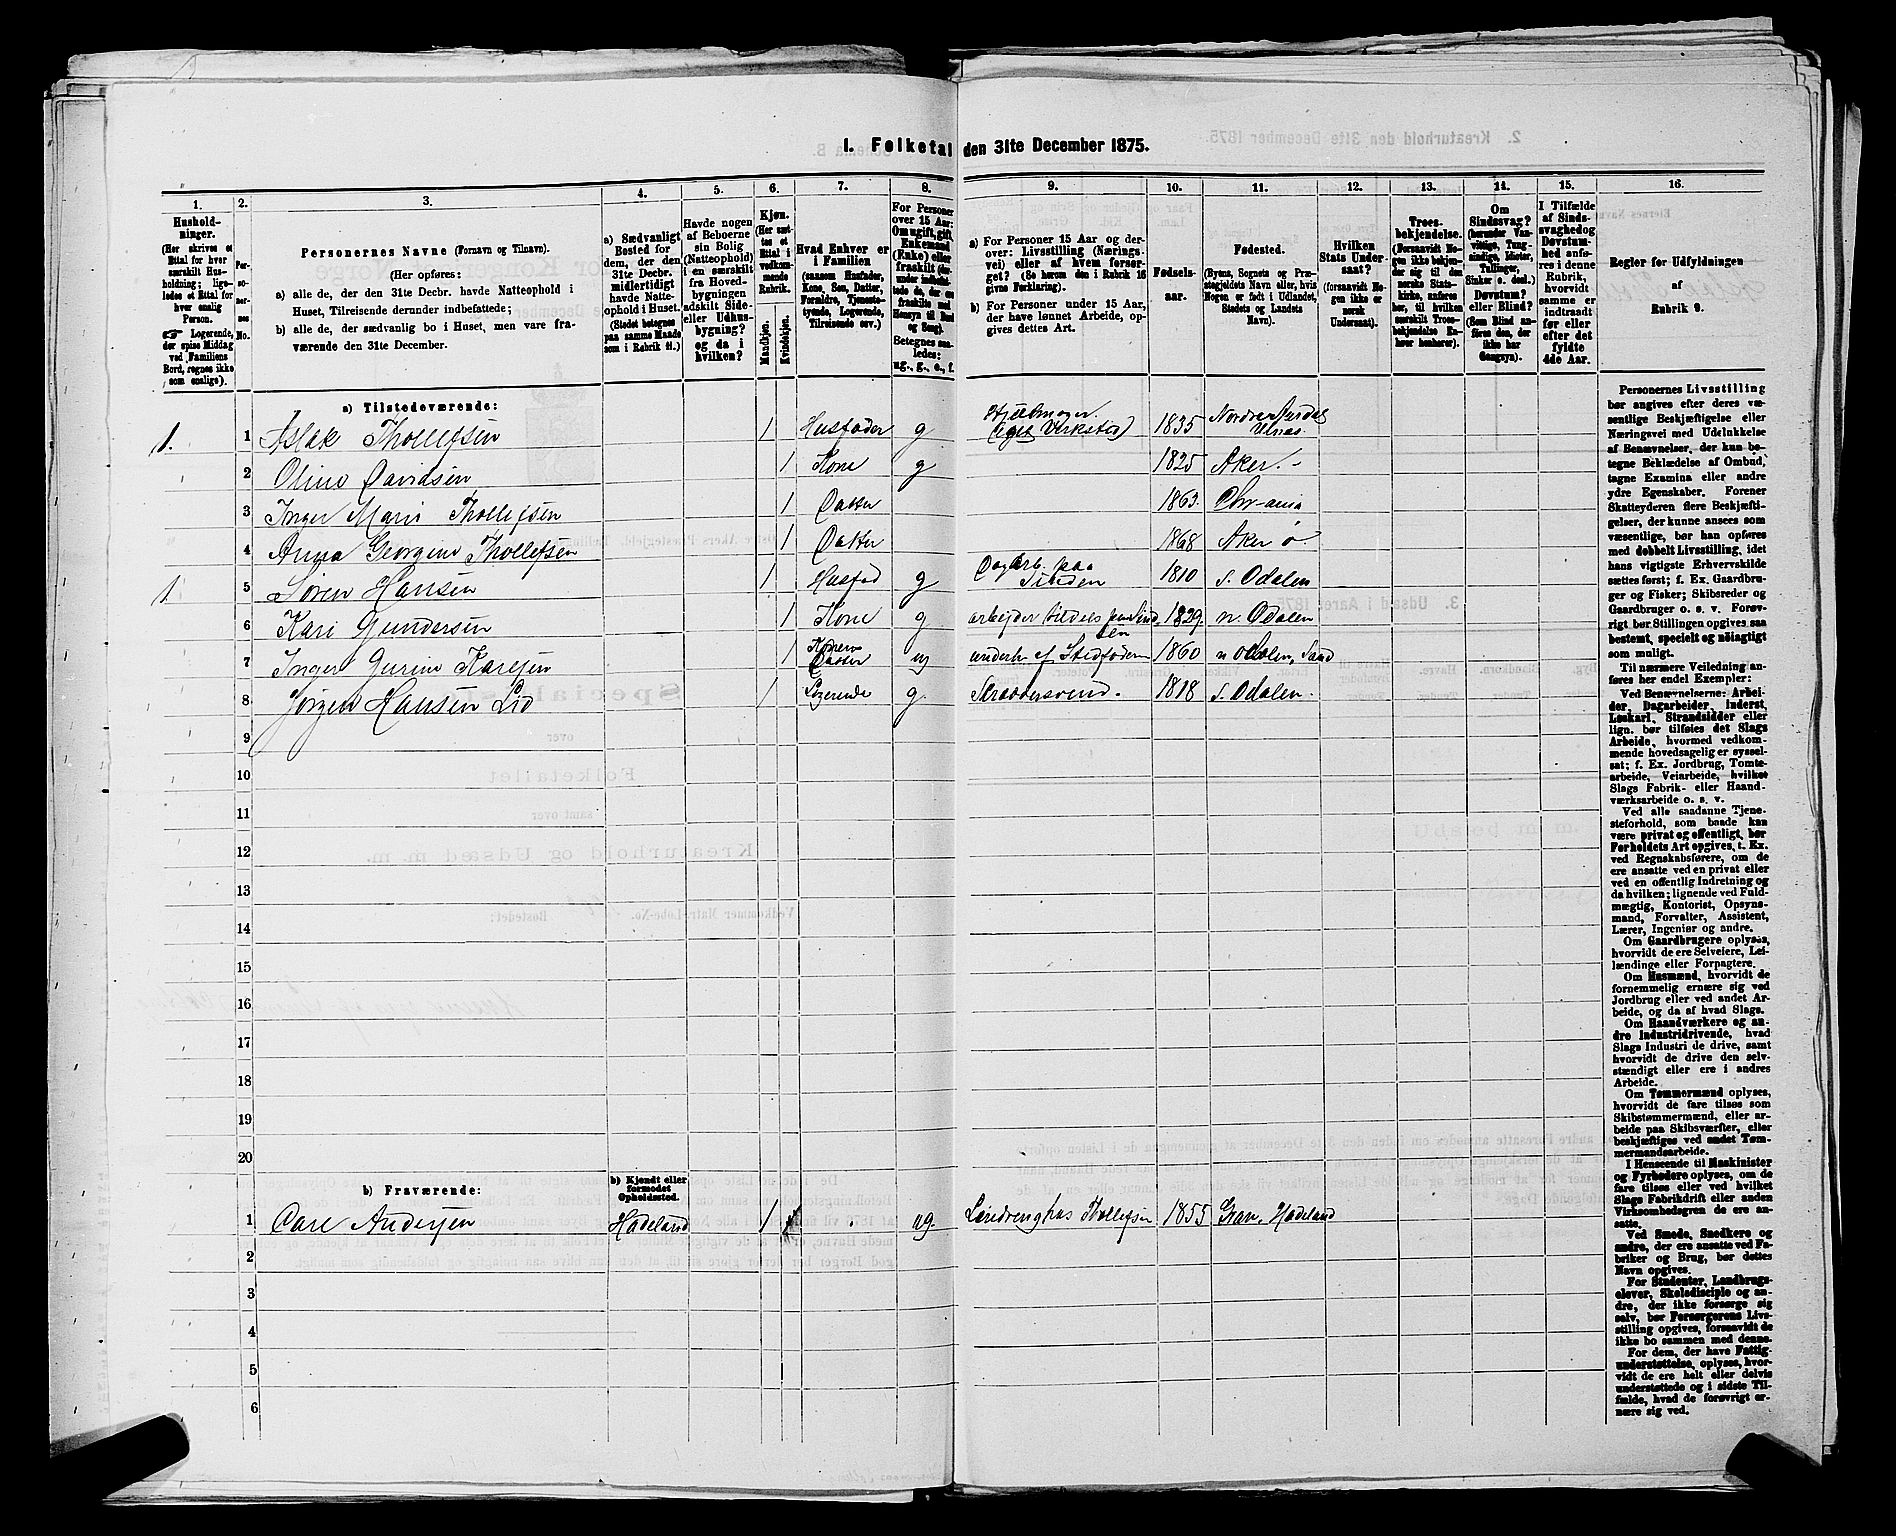 1. Folketal den 31te December 1875.
1. 2. 3. 4. 5. 6. 7. 8. 9. 10. 11. 12. 13. 14. 15. 16.
Husholdninger.
(Her skrives et Ettal for hver særskilt Husholdning; ligeledes et Ettal for hver enslig Person.
Logerende, der spise Middag ved Familiens Bord, regnes ikke som enslige).
Personernes No.
Personernes Navne (Fornavn og Tilnavn).
(Her opføres:
a) alle de, der den 31te Decbr. havde Natteophold i Huset, Tilreisende derunder indbefattede;
b) alle de, der sædvanlig bo i Huset, men vare fraværende den 31te December.
a) Sædvanligt Bosted for dem, der den 31te Decbr. midlertidigt havde Natteophold i Huset.
(Stedet betegnes paa samme Maade som i Rubrik 11.)
Havde nogen af Beboerne sin Bolig (Natteophold) i en særskilt fra Hovedbygningen adskilt Side- eller Udhusbygning? og da i hvilken?
Kjøn.
(Her sættes et Ettal i vedkommende Rubrik.
Mandkjøn.
Kvindekjøn.
Hvad Enhver er i Familien
(saasom Husfader, Kone, Søn, Datter, Forældre, Tjenestetyende, Logerende, Tilreisende osv.)
For Personer over 15 Aar: Om ugift, gift, Enkemand (Enke) eller fraskilt
Betegnes saaledes: ug., g., e., f.
a) For Personer 15 Aar og derover: Livsstilling (Næringsvei) eller af hvem forsørget? (Se herom den i Rubrik 16 givne Forklaring).
b) For Personer under 15 Aar, der have lønnet Arbeide, opgives dettes Art.
Fødselsaar.
Fødested.
(Byens, Sognets og Præstegjeldets Navn eller, hvis Nogen er født i Udlandet, Stedets og Landets Navn).
Hvilken Stats Undersaat?
(forsaavidt Nogen ikke er norsk Undersaat).
Troesbekjendelse.
(Forsaavidt Nogen ikke bekjender sig til den norske Statskirke, anføres her, til hvilken særskilt Troesbekjendelse Enhver henhører).
Om Sindssvag?
(herunder Vanvittige, Tungsindige, Idioter, Tullinger, Sinker o. desl.).
Døvstum? eller Blind?
(Som Blind anføres den, der ikke har Gangsyn).
I Tilfælde af Sindssvaghed og Døvstumhed anføres i denne Rubrik, hvorvidt samme er indtraadt før eller efter det fyldte 4de Aar.
Regler for Udfyldningen af Rubrik 9.
a) Tilstedeværende:
1. 1 Aslak Thollefsen 1 Husfader g Hjulmager. (eget Verksted) 1835 Nordre Aurdal Ulnæs.
2 Oline Davidsen 1 Kone g 1825 Aker.
3 Inger Marie Thollefsen 1 Datter 1863. Chr-ania
4 Anna Georgine Thollefsen 1 Datter 1868 Aker ø.
1. 5 Søren Hansen 1 Husfad g Dagarb. paa 1810 s. Odalen
6 Kari Gundersen 1 Kone g arbejder tildels paa 1829. n. Odalen
7 Inger Gurine Karlsen 1 Konens Datter ug underh. af Stedfaderen 1860 n Odalen, Sand
8 Jørgen Hansen Lid 1 Logerende g. Skræddersvend. 1818 s. Odalen.
9
10
11
12
13
14
15
16
17
18
19
20
b) Fraværende:
b) Kjendt eller formodet Opholdssted.
1 Carl Andersen Hadeland 1 ug. Læredreng hos Thollefsen 1855 Gran, Hadeland
2
3
4
5
6
Personernes Livsstilling bør angives efter deres væsentlige Beskjæftigelse eller Næringsvei med Udelukkelse af Benævnelser, der kun betegne Beklædelse af Ombud, tagne Examina eller andre ydre Egenskaber. Forener Skatteyderen flere Beskjæftigelser, der kunne ansees som væsentlige, bør han opføres med dobbelt Livsstilling, idet hans vigtigste Erhvervskilde sættes først; f. Ex. Gaardbruger og Fisker; Skibsreder og Gaardbruger o. s. v. Forøvrigt bør Stillingen opgives saa bestemt, specielt og nøiagtigt som muligt.
Til nærmere Veiledning anføres her endel Exempler:
Ved Benævnelserne: Arbeider, Dagarbeider, Inderst, Løskarl, Strandsidder eller lign. bør tilføies det Slags Arbeide, hvormed vedkommende hovedsagelig er sysselsat; f. Ex. Jordbrug, Tomtearbeide, Veiarbeide, hvilket Slags Fabrik- eller Haandværksarbeide o. s. v.
Ved alle saadanne Tjenesteforhold, som baade kan være privat og offentligt, bør Forholdets Art opgives, t. Ex. ved Regnskabsførere, om de ere ansatte ved en privat eller ved en offentlig Indretning og da hvilken; lignende ved Fuldmægtig, Kontorist, Opsynsmand, Forvalter, Assistent, Lærer, Ingeniør og andre.
Om Gaardbrugere oplyses, hvorvidt de ere Selveiere, Leilændinge eller Forpagtere.
Om Husmænd, hvorvidt de fornemmelig ernære sig ved Jordbrug eller ved andet Arbeide, og da af hvad Slags.
Om Haandværkere og andre Industridrivende, hvad Slags Industri de drive, samt hvorvidt de drive den selvstændigt eller ere i andres Arbeide.
Om Tømmermænd oplyses, hvorvidt de fare tilsøs som Skibstømmermænd, eller arbeide paa Skibsværfter, eller beskjæftiges ved andet Tømmermandsarbeide.
I Henseende til Maskinister og Fyrbødere oplyses, om de fare tilsøs eller ved hvilket Slags Fabrikdrift eller anden Virksomhedsgren de ere ansatte.
Ved Smede, Snedkere og andre, der ere ansatte ved Fabriker og Brug, bør dettes Navn opgives.
For Studenter, Landbrugselever, Skoledisciple og andre, der ikke forsørge sig selv, bør Forsørgerens Livsstilling opgives, forsaavidt de ikke bo sammen med denne.
For dem, der have Fattigunderstøttelse, oplyses, hvorvidt de ere helt eller delvis understøttede og i sidste Tilfælde, hvad de forøvrigt ernære sig ved.